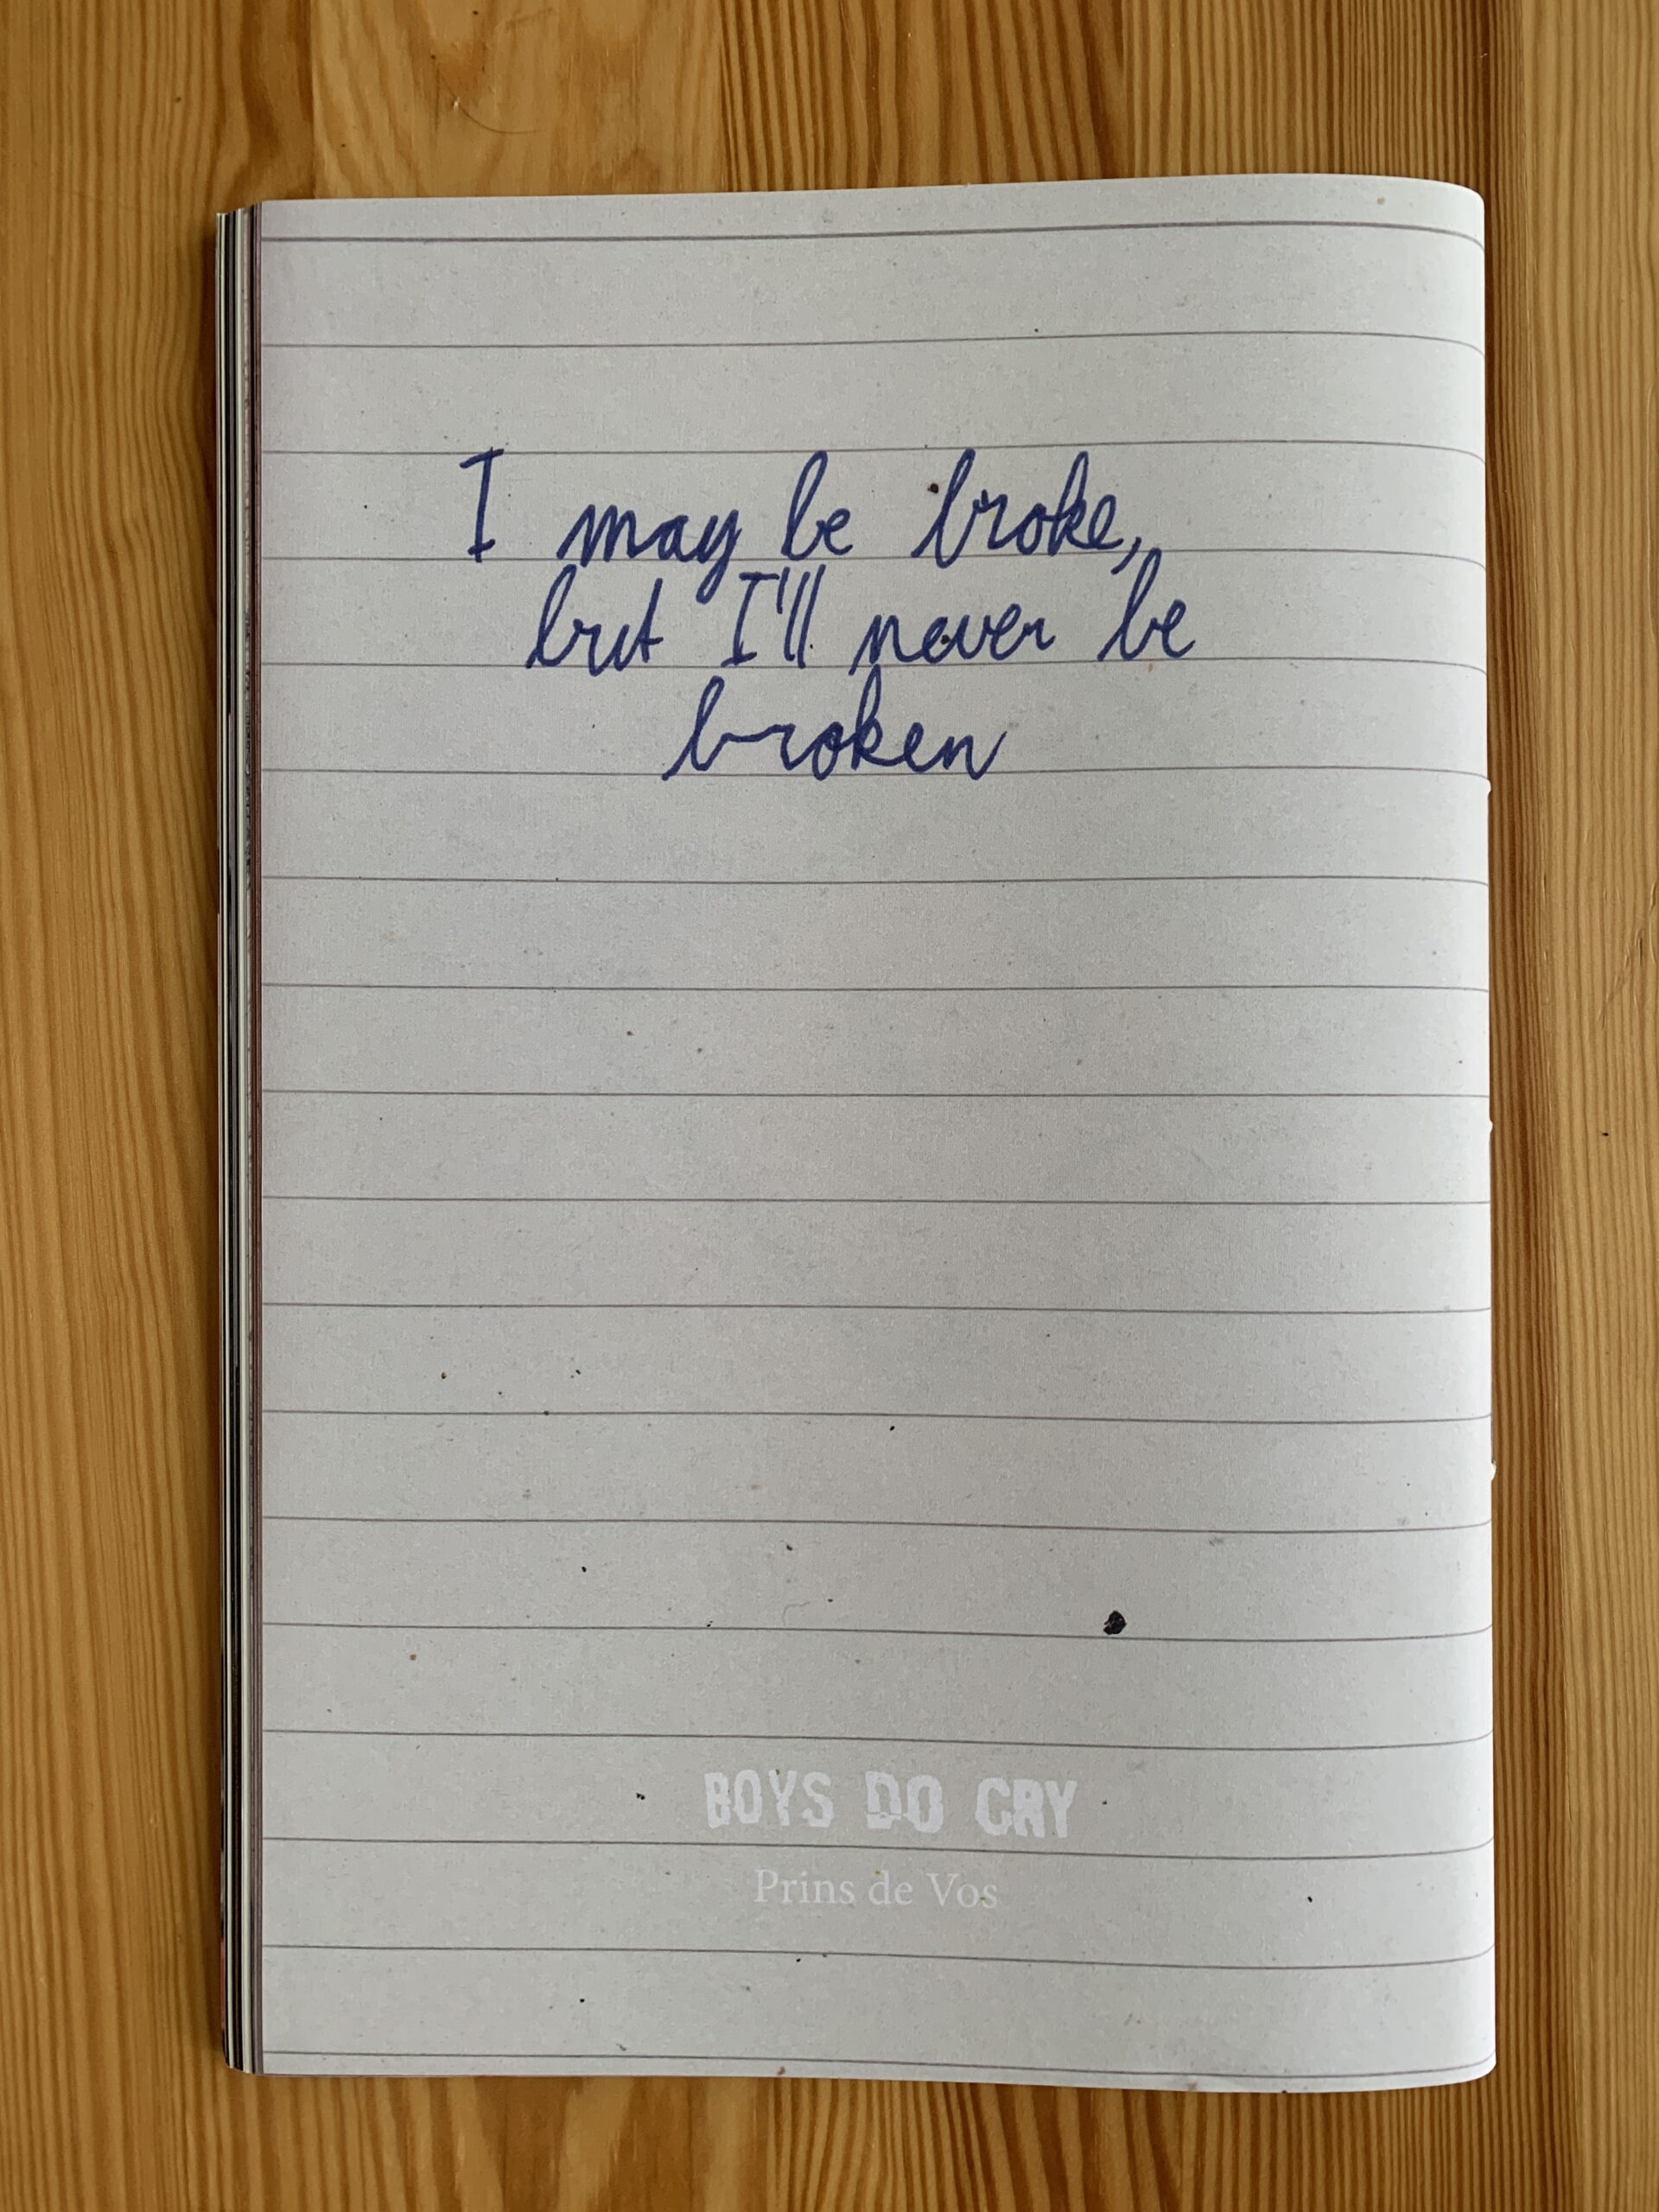 I may be broke,
but I'll never be
broken
BOYS DO CRY
Prins de Vos